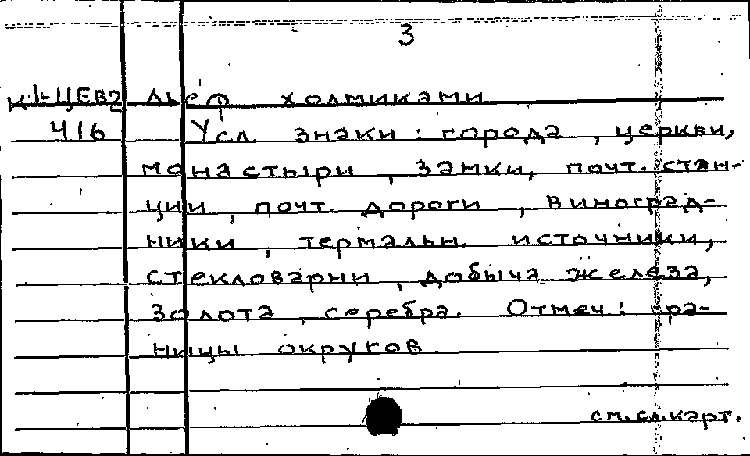 3
К1-ЦЕВ2 льеф холмиками
416 Усл. знаки: города, церкви,
монастыри, замки, почт. стан-
ции, почт. дороги, виноград-
ники, термальн. источники,
стекловарни, добыча железа,
золота, серебра. Отмеч: гра-
ницы округов
см. сл. карт.